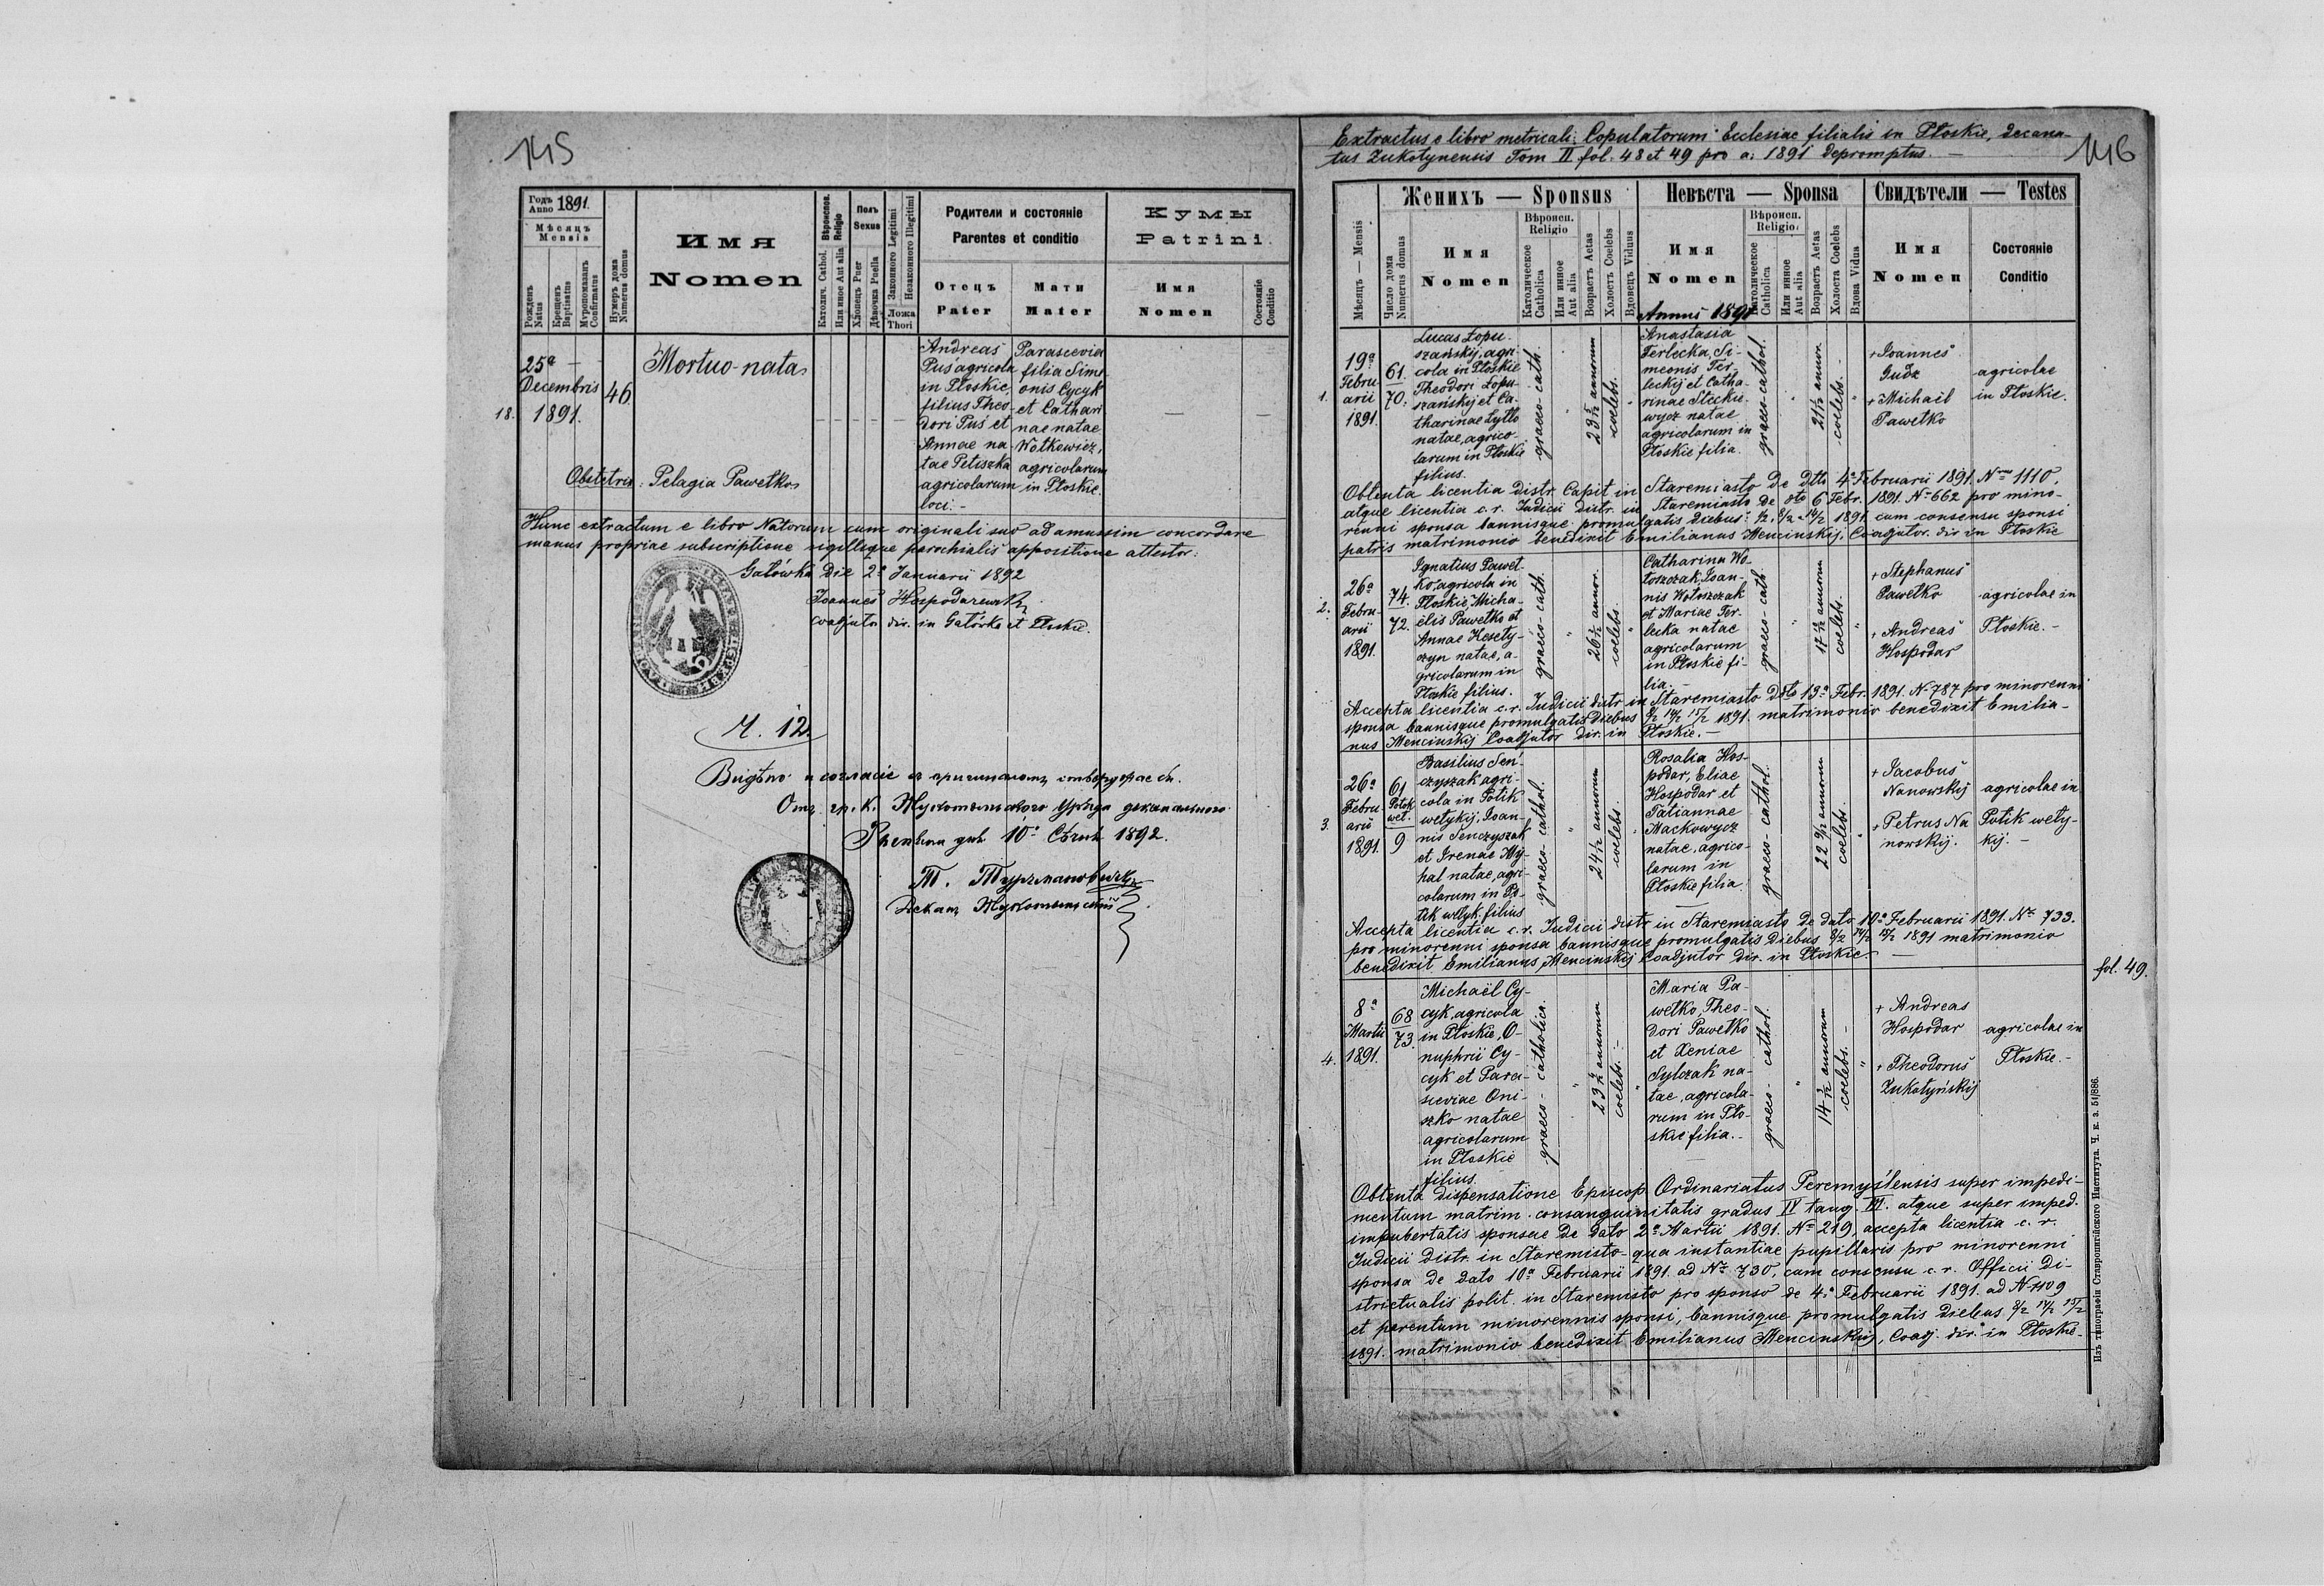 145
Годъ Anno 1891.
Мѣсяцъ
Mensis
Рожденъ Natus
Крещенъ Baptisatus
Мѵропомазанъ Confirmatus
Нумеръ дома Numerus domus
Имя
Nomen
Вѣроиспов. Religio
Католич. Cathol.
Или иное Aut alia
Полъ
Sexus
Хлопецъ Puer
Дѣвочка Puella
Законного Legitimi
Незаконного Illegitimi
Ложа
Thori
Родители и состоянiе
Parentes et conditio
Отецъ
Pater
Мати
Mater
Кумы
Patrini.
Имя
Nomen
Состоянiе
Conditio
18.
25ª
Decembris
1891.
46.
Mortuo-nata
Andreas
Puś agricola
in Płoskie,
filius Theo-
dori Puś et
Annae na-
tae Petiszka
agricolarum
loci.-
Parascevia
filia Sime-
onis Cycyk
et Cathari
nae natae
Wołkowicz,
agricolarum
in Płoskie.
Obstetrix: Pelagia Pawełko
Hunc extractum e libro Natorum cum originali suo ad amussim concordare
manus propriae subscriptione sigillique parochialis appositione attestor:
Gałówka die 2ª Januarii 1892
Joannes
coadjutor dir. in Gałówka et Płoskie.
Ч. 12.
Видѣно и согласіе
Дня 10. Сѣчня 1892.
Деканъ
146
Extractus e libro metricali: Copulatorum Ecclesiae filialis in Płoskie, decana-
tus Żukotynensis Tom II fol. 48 et 49 pro a: 1891 depromptus.-
Женихъ — Sponsus
Невѣста — Sponsa
Свидѣтели — Testes
Мѣсяцъ — Mensis
Число дома Numerus domus
Имя
Nomen
Вѣроисп.
Religio
Католическое Catholica
Или инное Aut alia
Возрастъ Aetas
Холостъ Coelebs
Вдовецъ Viduus
Имя
Nomen
Вѣроисп.
Religio
Католическое Catholica
Или инное Aut alia
Возрастъ Aetas
Холоста Coelebs
Вдова Vidua
Имя
Nomen
Состоянiе
Conditio
Annus 1891
1.
19ª
Febru-
arii
1891.
61
70.
Lucas Łopu-
szańskij, agri-
cola in Płoskie
Theodori Łopu-
szańskij et Ca-
tharinae Łytło
natae, agrico-
larum in Płoskie
filius.
graeco-cath.
23 5/12 annorum
coelebs.
Anastasia
Terlecka, Si-
meonis Ter-
leckij et Catha-
rinae
natae
agricolarum in
Płoskie filia.
graeco-cathol.
coelebs.
+ Joannes
Gudz
+ Michael
Pawełko
agricolae
in Płoskie.
Obtenta licentia distr. Capit in Staremiasto de dtto 4ª Februarii 1891. Nro 1110,
atque licentia c.r. Judicii distr. in Staremiasto de dto 6 Febr. 1891. No 662 pro mino-
renni sponsa bannisque promulgatis diebus: 1/2, 8/2 14/2 1891. cum consensu sponsi
patris matrimonio benedixit Emilianus Mencinskij, Coadjutor. dir in Płoskie
2.
26ª
Febru-
arii
1891.
74.
72.
Ignatius Paweł-
ko, agricola in
Płoskie, Micha-
ëlis Pawełko et
Annae
natae, a-
gricolarum in
Płoskie filius.
graeco-cath.
coelebs.
Catharina Wo-
łoszczak, Joan-
nis Wołoszczak
et Mariae Ter-
lecka natae
agricolarum
in Płoskie fi-
lia.-
graeco-cath.
coelebs.
+ Stephanus
Pawełko
+ Andreas
Hospodar
agricolae in
Płoskie.-
Accepta licentia c.r. Judicii distr. in Staremiasto dto 13ª Febr. 1891. No 787 pro minorenni
sponsa bannisque promulgatis diebus 8/2 14/2 15/2 1891. matrimonio benedixit Emilia-
nus Mencinskij Coadjutor dir. in Płoskie.-
3.
26ª
Febru-
arii
1891.
61
Potok
weł.
9
Basilius Sen-
czyszak agri-
cola in Potik
wełykij, Joan-
nis Senczyszak
et Irenae My-
hal natae, agri-
colarum in Po-
tik wełyk. filius
graeco-cathol.
coelebs
Rosalia Hos-
podar, Eliae
Hospodar et
Tatiannae
Mackowycz
natae, agrico-
larum in
Płoskie filia.
graeco-cathol.
22 9/12 annorum
coelebs.
+ Jacobus
Nanowskij
+ Petrus Na
nowskij.
agricolae in
Potik weły-
kij.-
Accepta licentia c.r. Judicii distr in Staremiasto de dato 10ª Februarii 1891. No 733.
pro minorenni sponsa bannisque promulgatis diebus 8/2 14/2 15/2 1891 matrimonio
benedixit Emilianus Mencinskij Coadjutor dir. in Płoskie.-
fol. 49.
4.
8ª
Martii
1891.
68
73.
Michaël Cy-
cyk, agricola
in Płoskie, O-
nuphrii Cy-
cyk et Para-
sceviae Oni-
szko natae
agricolarum
in Płoskie
filius.
graeco-catholica.
coelebs.-
Maria Pa-
wełko, Theo-
dori Pawełko
et Xeniae
Sylczak na-
tae, agricola-
rum in Pło-
skie filia.-
graeco-cathol.
coelebs.-
+ Andreas
Hospodar
+ Theodorus
Żukotyńskij
agricolae in
Płoskie.-
Obtenta dispensatione Episcop. Ordinariatus Peremyślensis super impedi-
mentum matrim. consanguinitatis gradus IV tang. III. atque super imped.
impubertatis sponsae de dato 2ª Martii 1891. No 219, accepta licentia c.r.
Judicii distr. in Staremisto qua instantiae pupillaris pro minorenni
sponsa de dato 10ª Februarii 1891. ad No 730, cum consensu c.r. Officii di-
strictualis polit. in Staremisto pro sponso de 4ª Februarii 1891. ad N 1109
et parentum minorennis sponsi, bannisque promulgatis diebus 8/2 14/2 15/2
1891. matrimonio benedixit Emilianus Mencinskij, Coadj. dir. in Płoskie.
Изъ типографiи Ставропигiйского Института. Ч. к. з. 51/886.